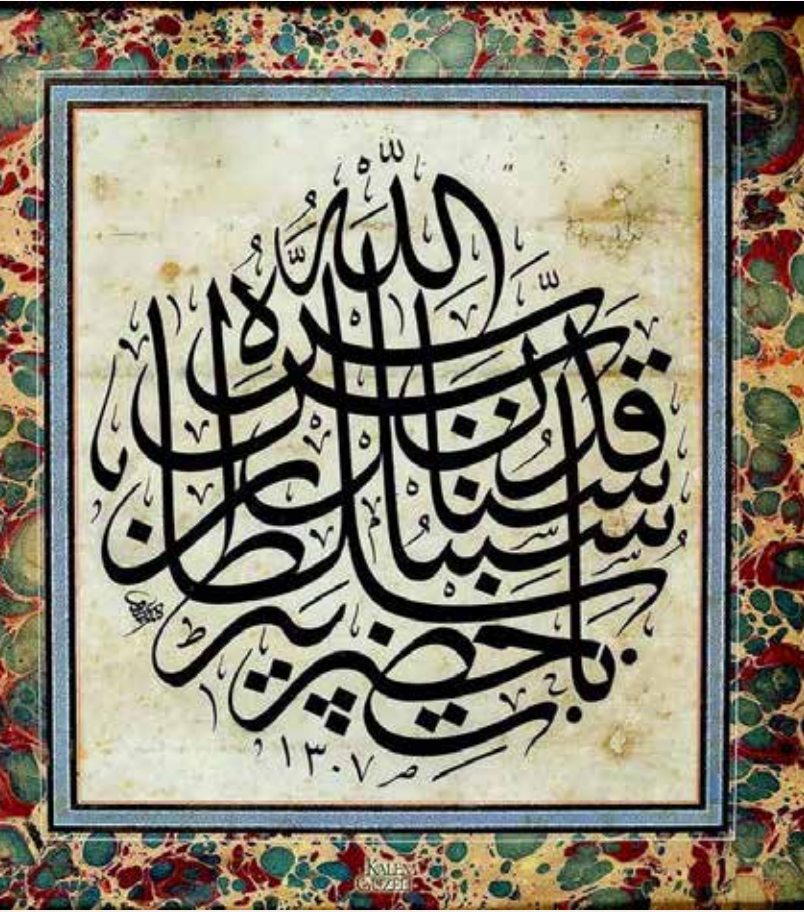 يا حضرت پير
سلطان سنبل سنان
قدس الله سره
١٣٠٧
KALEM GÜZELİ